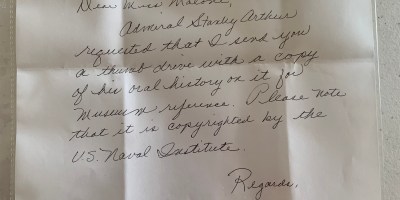 Dear Miss Malone,
Admiral Stanley Arthur
requested that I send you
a thumb drive with a copy
of his oral history on it for
Museum reference. Please note
that it is copyrighted by the
U.S. Naval Institute.
Regards,